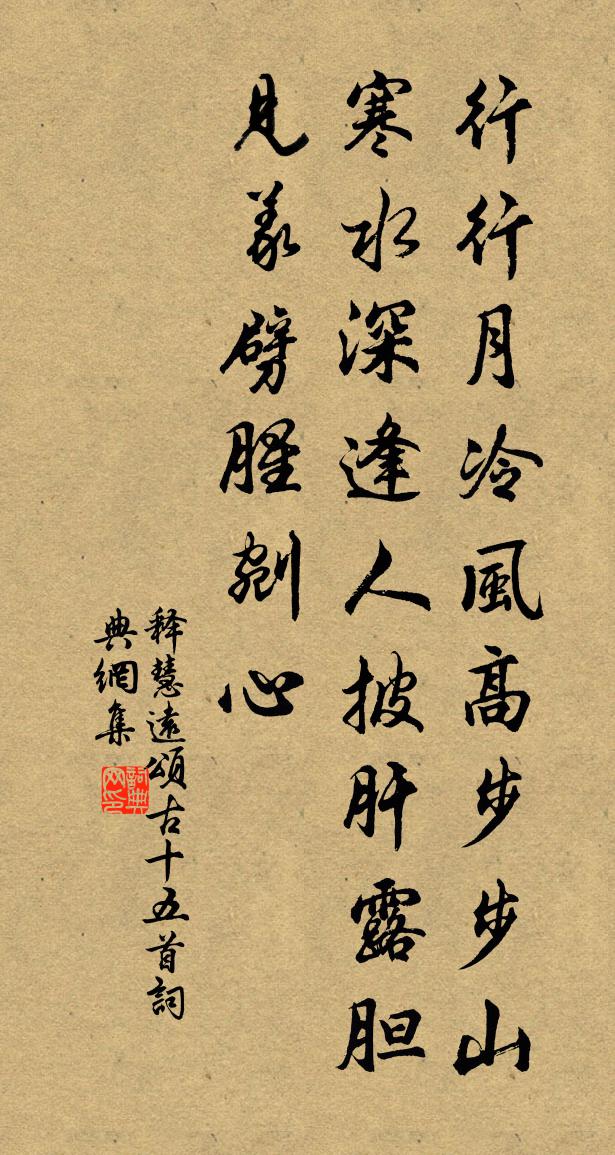 行行月冷風高步步山
寒水深逢人披肝露胆
見義劈腥剜心
释慧遠頌古十五首詞
典網集
詞典
网印